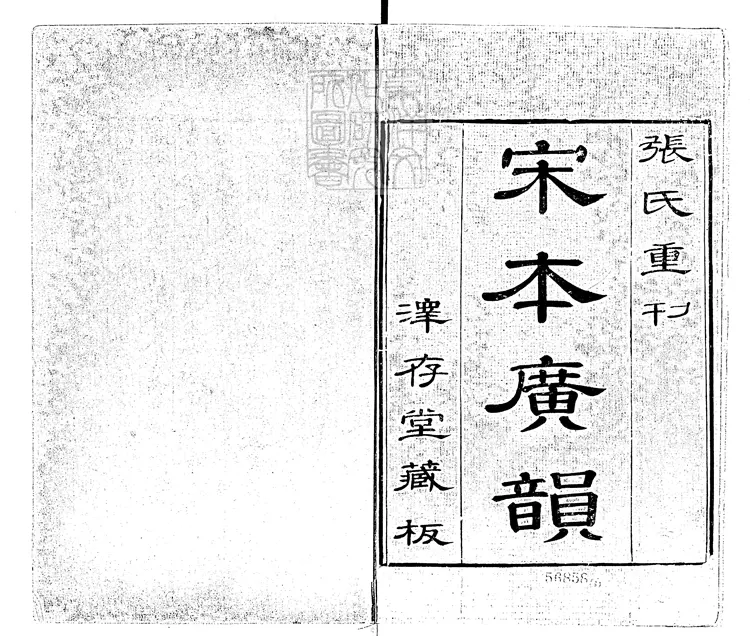 張氏重刊
宋本廣韻
澤存堂藏板